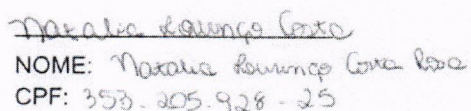 Natalia Lourenço Costa
NOME: Natalia Lourenço Costa Rosa
CPF: 353.205.928-25